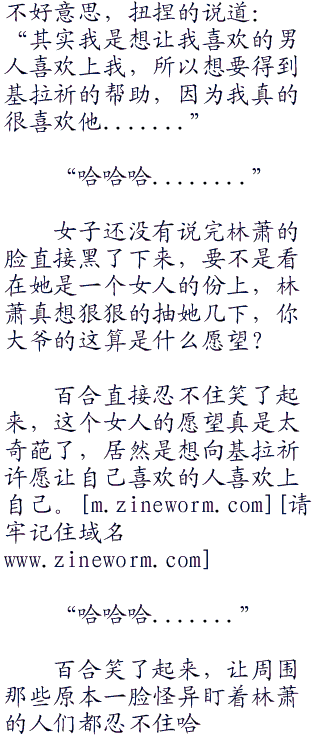 不好意思，扭捏的说道：
“其实我是想让我喜欢的男
人喜欢上我，所以想要得到
基拉祈的帮助，因为我真的
很喜欢他.......”
“哈哈哈........”
女子还没有说完林萧的
脸直接黑了下来，要不是看
在她是一个女人的份上，林
萧真想狠狠的抽她几下，你
大爷的这算是什么愿望？
百合直接忍不住笑了起
来，这个女人的愿望真是太
奇葩了，居然是想向基拉祈
许愿让自己喜欢的人喜欢上
自己。[m.zineworm.com][请
牢记住域名
www.zineworm.com]
“哈哈哈.......”
百合笑了起来，让周围
那些原本一脸怪异盯着林萧
的人们都忍不住哈